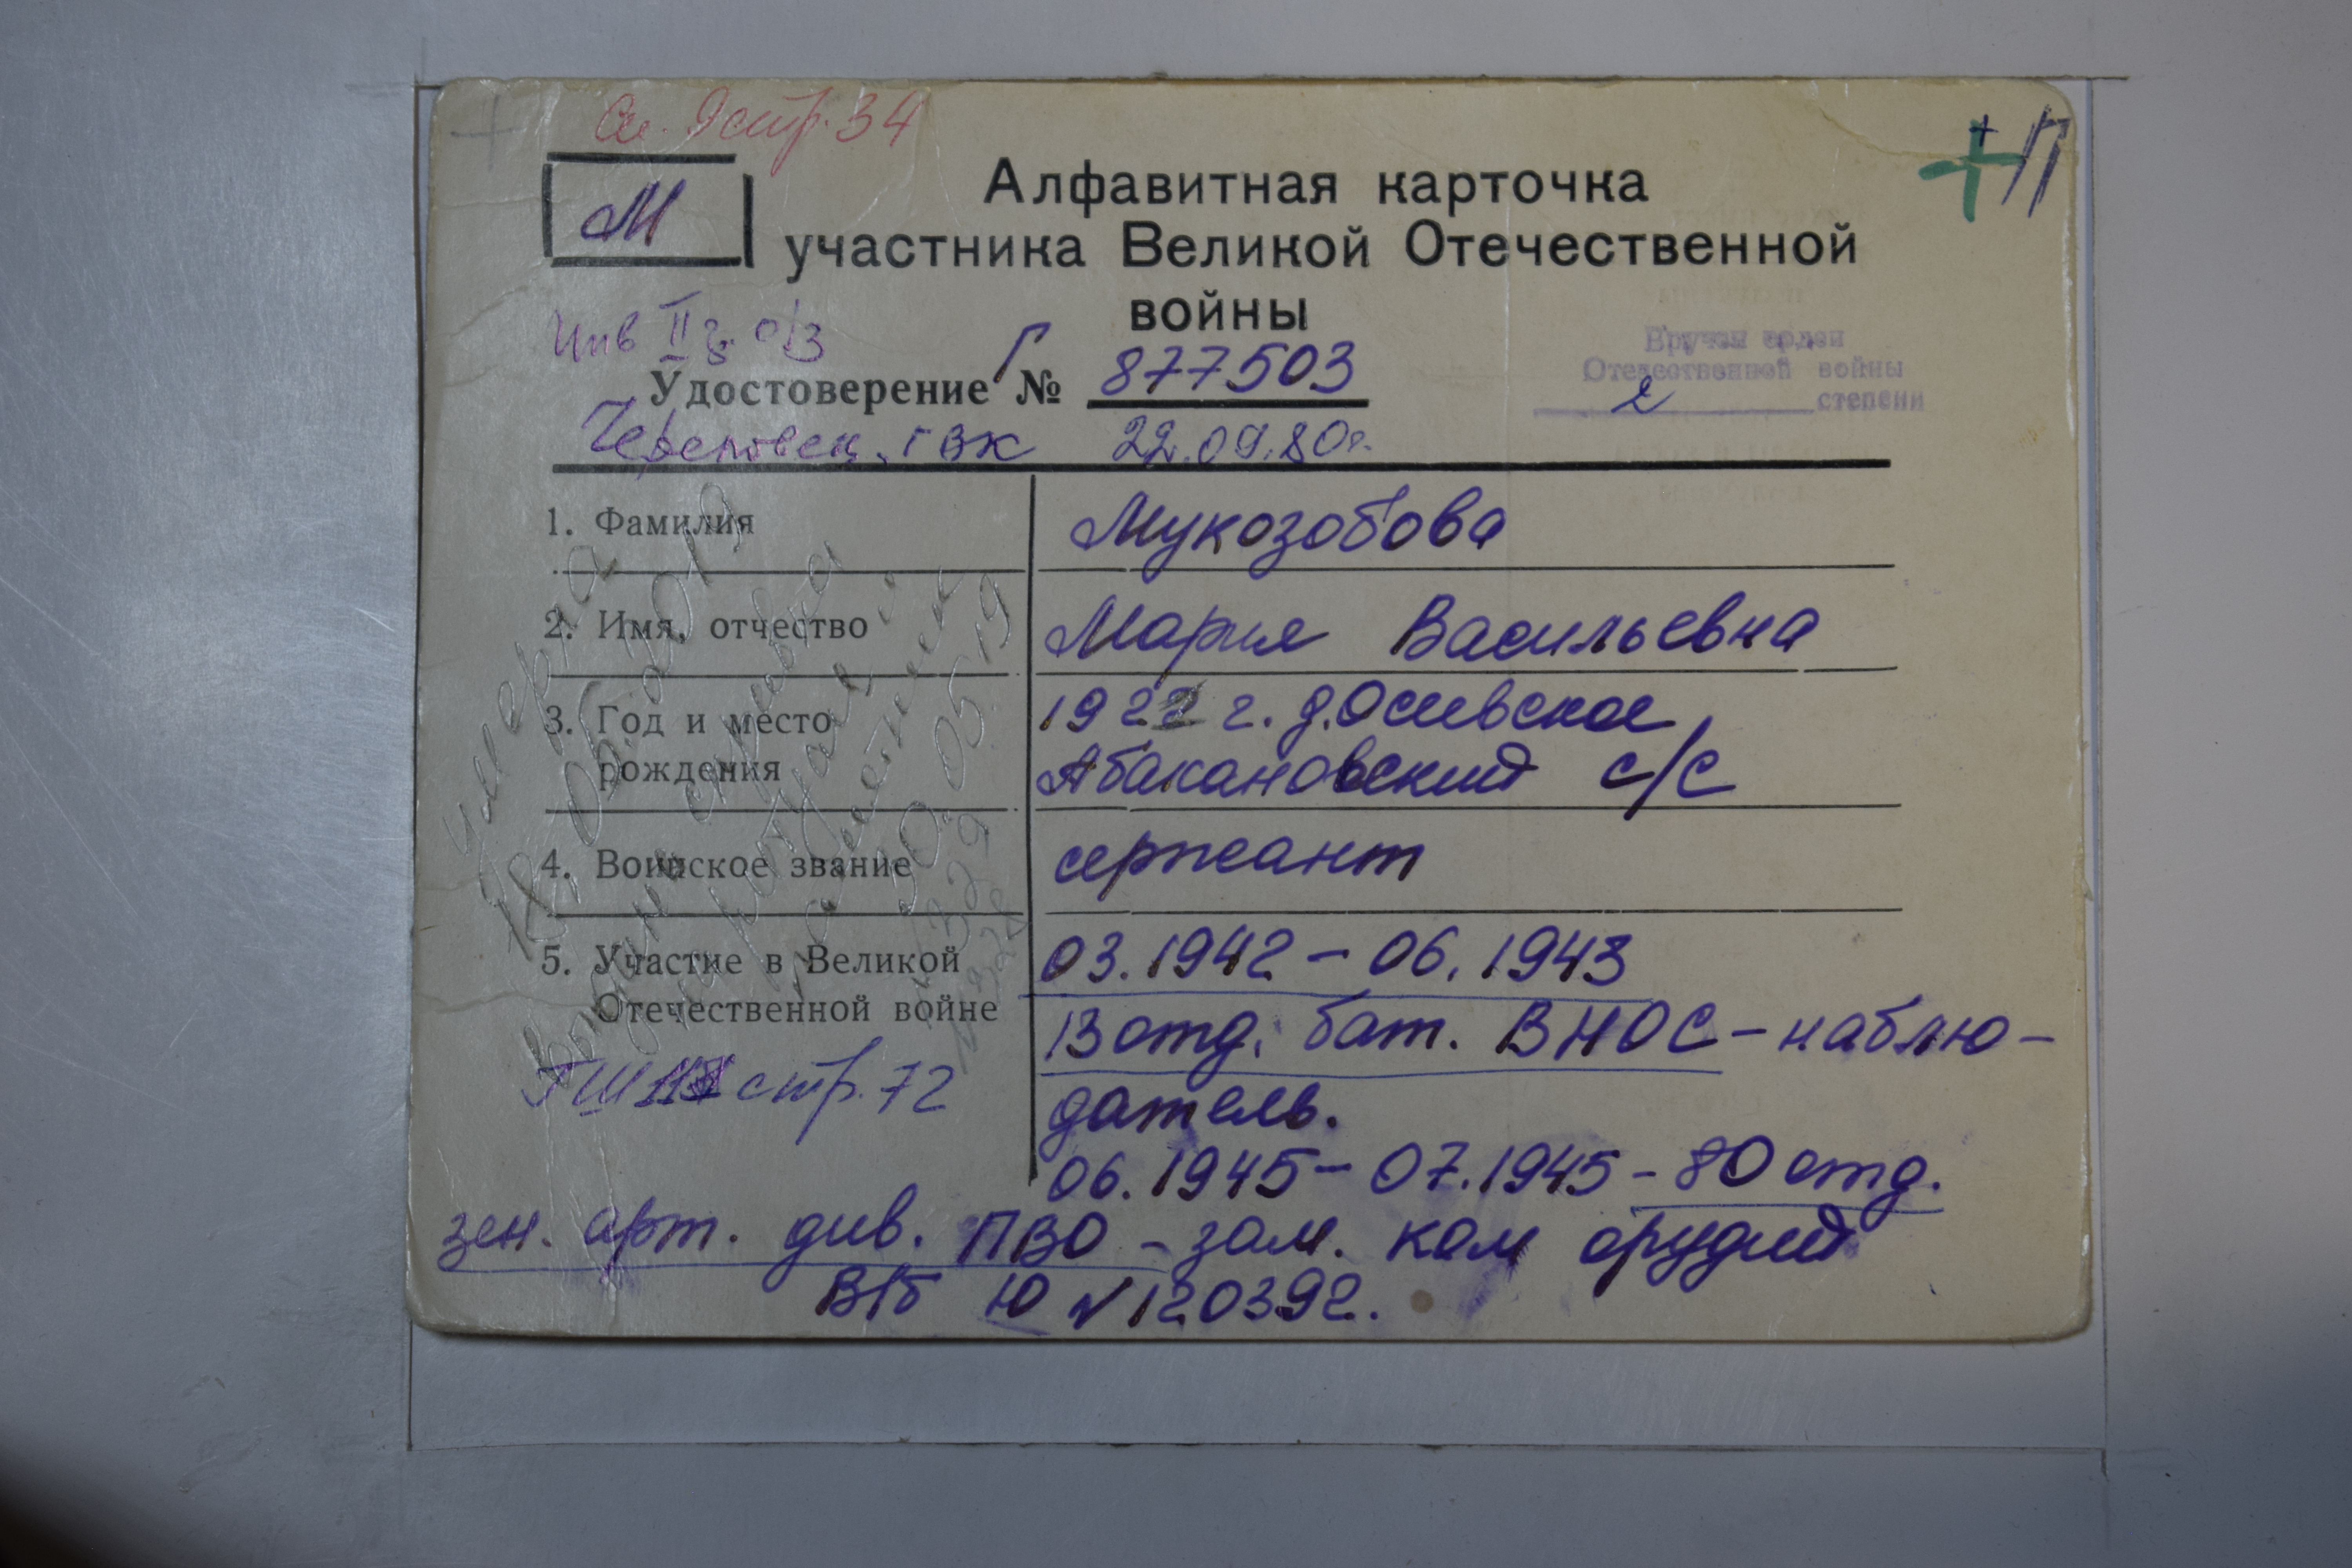 стр. 34
+ П
М
Алфавитная карточка
участника Великой Отечественной
войны
Инв II г. о/з
Вручен орден
Отечественной войны
2 степени
Удостоверение Г № 877503
Череповец. ГВК 22.09.80г.
1. Фамилия Мукозобова
2. Имя, отчество Мария Васильевна
3. Год и место 1922 г. д.
рождения Абакановский с/с
4. Воинское звание сержант
5. Участие в Великой 03.1942 – 06.1943
Отечественной войне 13 отд. бат. ВНОС – наблю-
стр. 72 датель.
06.1945 – 07.1945 – 80 отд.
зен. арт. див. ПВО – зам. ком орудий
ВБ Ю №120392.
умерла
выбыла
справка